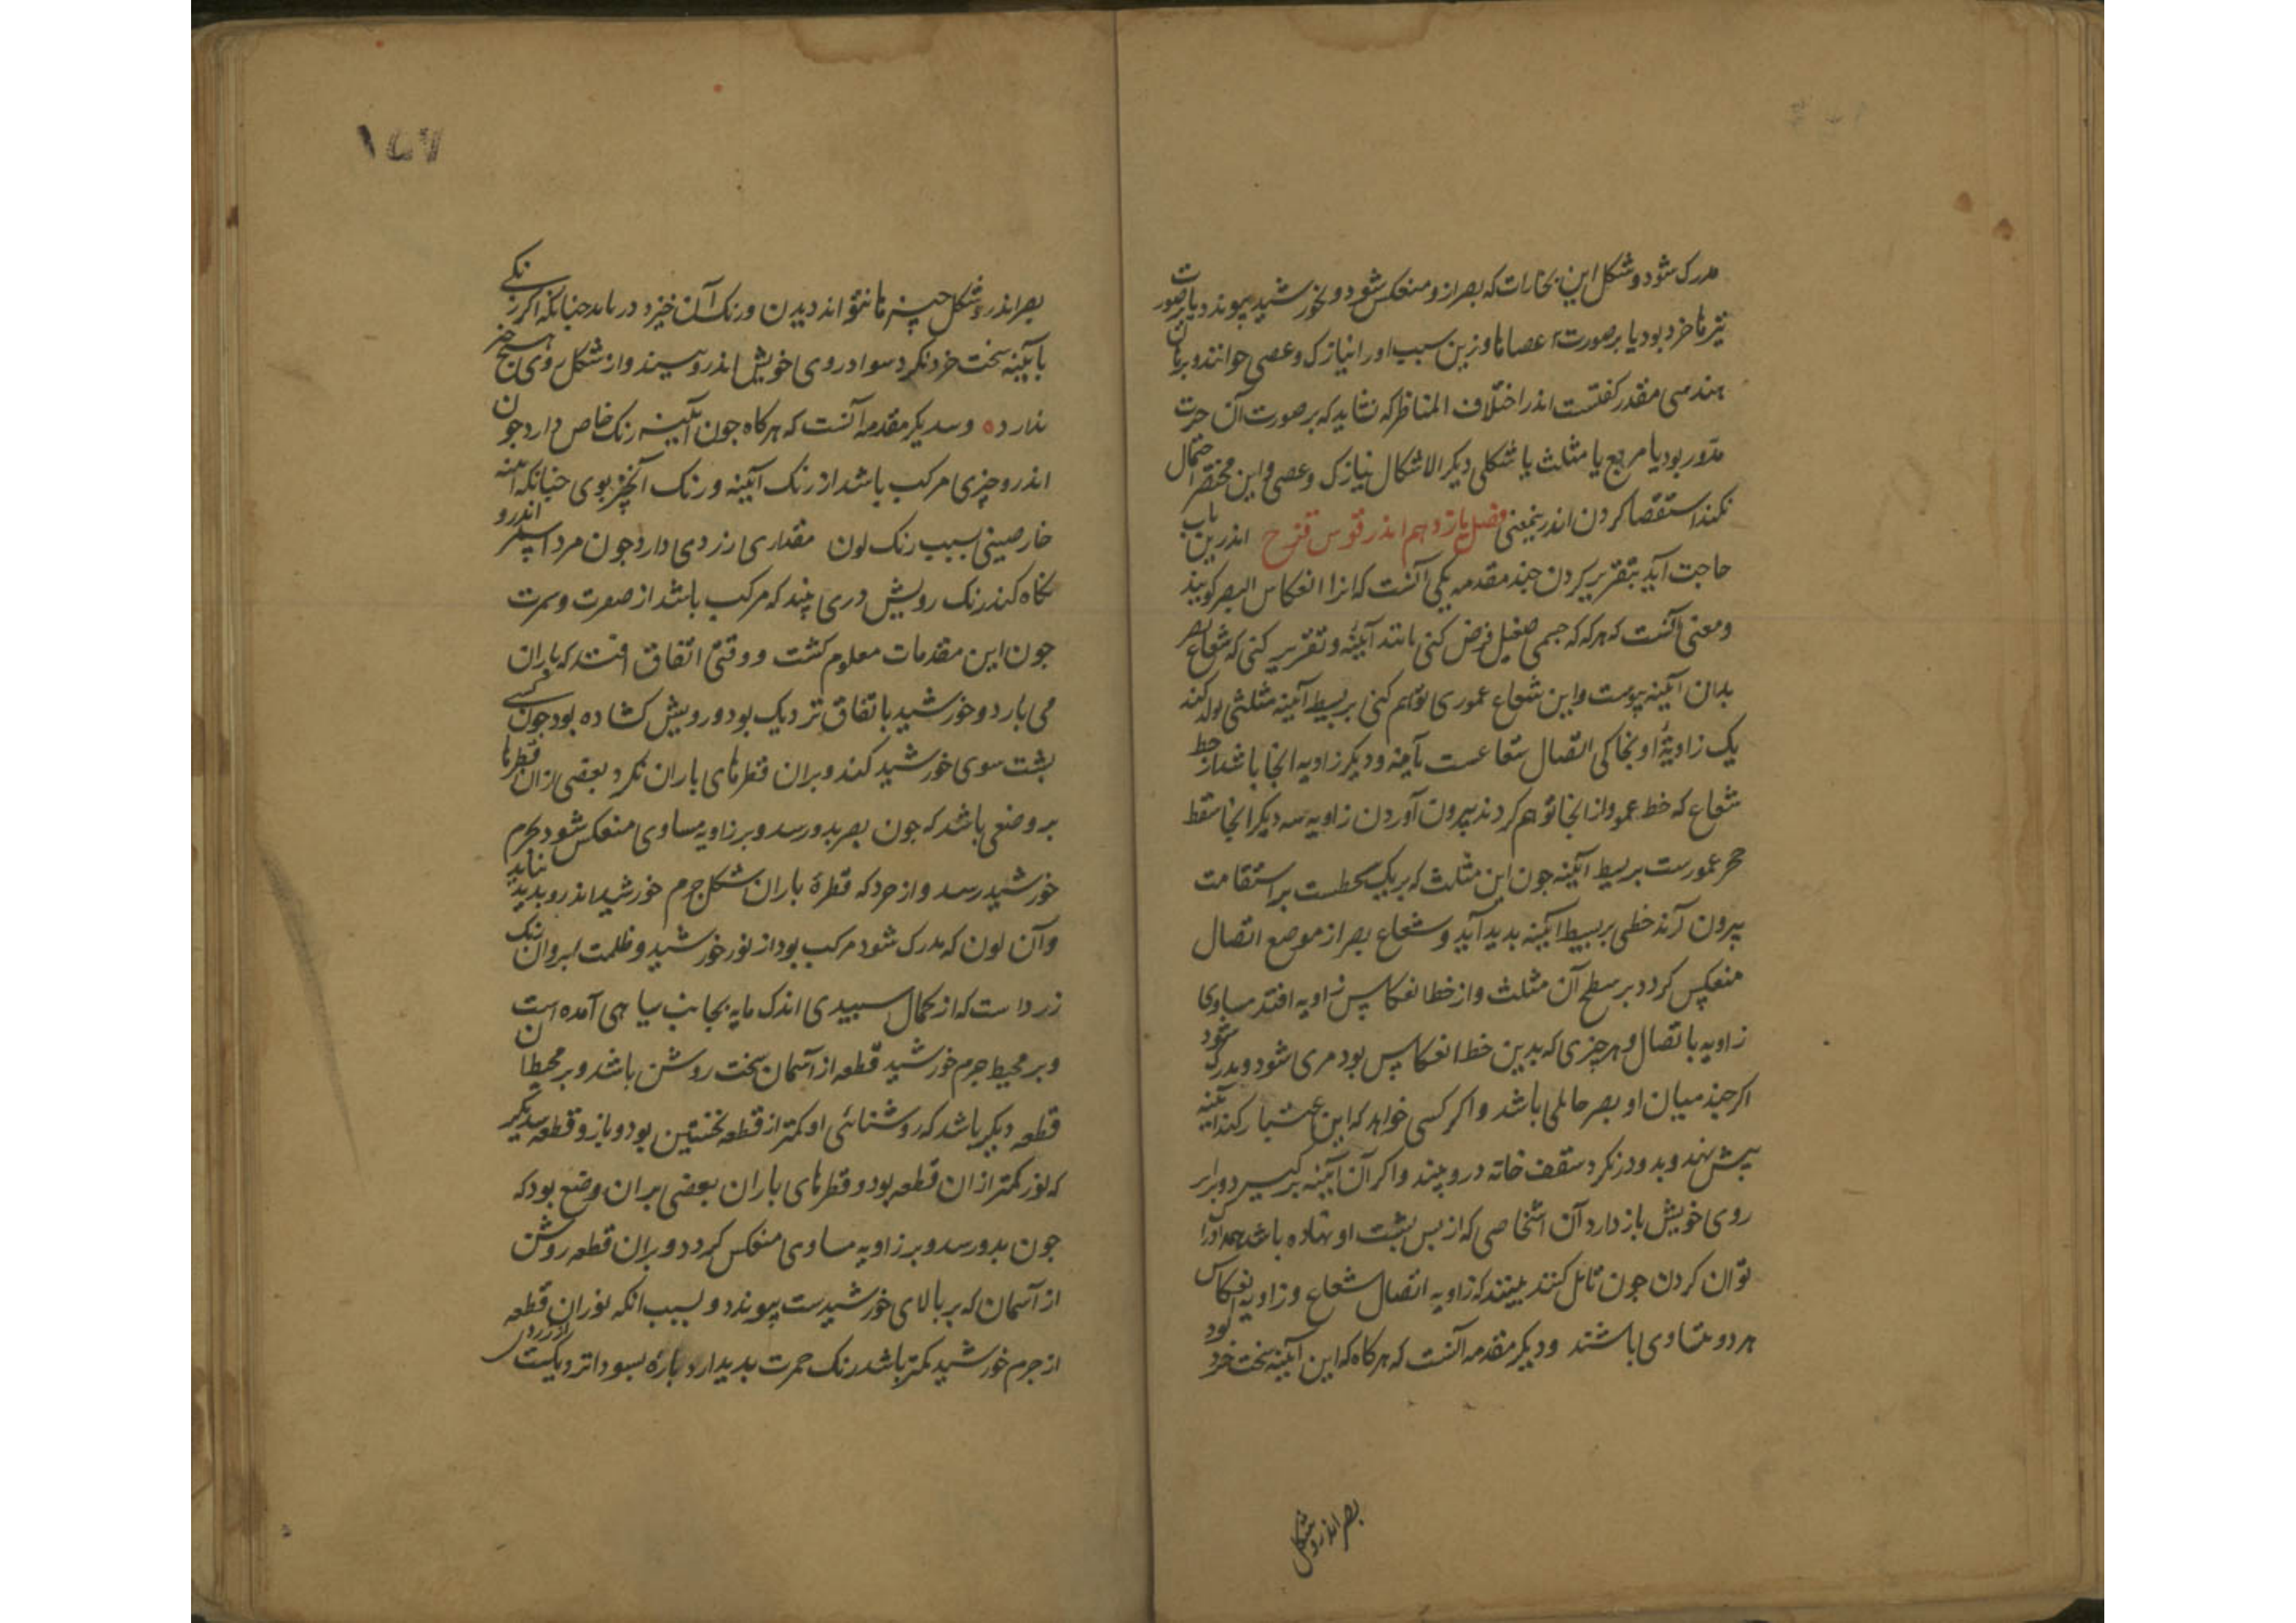 مدرک شود و شکل این بخارات که بصر ازو منعکس شود و بخورشید پیوندد یا بر صورت
نیزها خرد بود یا بر صورت عصاها و زین سبب او را نیازک و عصی خوانند و برهان
هندسی مقدر کفتست اندر اختلاف المناظر که نشاید که بر صورت آن حرت
مدور بود یا مربع یا مثلث یا شکلی دیکر الاشکال نیازک و عصی و این مختصر احتمال
نکند استقصا کردن اندرینمعنی فصل یازدهم اندر قوس قزح اندرین باب
حاجت آید بتقریر کردن چند مقدمه یکی آنست که انرا انعکاس البصر کویند
و معنی آنست که هر که که جسمی صقیل فرض کنی مانند آیینه و تقریر کنی که شعاع بصر
بدان آیینه پیوست و این شعاع عموری توهم کنی بر بسیط آیینه مثلثی تولد کند
یک زاویه او بجاکی اتصال شعاعست بآینه و دیکر زاویه انجا باشد از خط
شعاع که خط عمود از انجا توهم کردند بیرون آوردن زاویه سه دیکر انجا سقط
حجر عمورست بر بسیط آیینه جون این مثلث که بر یک سطحست بر استقامت
بیرون آرند خطی بر بسیط آیینه بدید آید و شعاع بصر از موضع اتصال
منعکس کردد بر سطح آن مثلث و از خط انعکاس زاویه افتد مساوی
زاویه با تصال و هر چیزی که بدین خط انعکاس بود مری شود و مدرک شود
اکر چند میان او بصر حایلی باشد و اکر کسی خواهد که این اعتبار کند آیینه
پیش نهد و بدو در نکرد سقف خانه درو بیند و اکر آن آیینه بر کیرد و برابر
روی خویش باز دارد آن اشخاصی که از پس پشت او نهاده باشد همه او را
توان کردن جون تامل کنند بینند که زاویه اتصال شعاع و زاویه انعکاس
هر دو متساوی باشند و دیکر مقدمه آنست که هر کاه که این آیینه سخت خرد بود
بصر اندرو شکل
بصر اندرو شکل چیزها نتواند دیدن و رنک آن خیزد دریابد چنانکه اکر زنکی
بآیینه سخت خرد نکرد سواد روی خویش اندرو بیند و از شکل روی هیچ خبر
ندارد ۰ و سدیکر مقدمه آنست که هر کاه جون آیینه رنک خاص دارد جون
اندرو چیزی مرکب باشد از رنک آیینه و رنک آنچیز بوی چنانکه آیینه
خارصینی بسبب رنک لون مقداری زردی دارد جون مرد اسمر اندرو
نکاه کند رنک رویش دری بیند که مرکب باشد از صفرت و سمرت
جون این مقدمات معلوم کشت و وقتی اتفاق افتد که باران
می بارد و خورشید باتفاق نزدیک بود و رویش کشاده بود جون کسی
بشت سوی خورشید کند و بران قطرهای باران نکرد بعضی ازان قطرها
بر وضعی باشد که جون بصر بدو رسد و بر زاویه مساوی منعکس شود بجرم
خورشید رسد و از خردکه قطره باران شکل جرم خورشید اندرو بدید نیاید
و آن لون که مدرک شود مرکب بود از نور خورشید و ظلمت ابر و ان رنک
زرد است که از کمال سبیدی اندک مایه بجانب سیاهی آمده است
و بر محیط جرم خورشید قطعه از آسمان سخت روشن باشد و بر محیط ان
قطعه دیکر باشد که روشنائی او کمتر از قطعه نخستین بود و باز و قطعه سدیکر
که نور کمتر ازان قطعه بود و قطرهای باران بعضی بران وضع بود که
جون بدو رسد و بر زاویه مساوی منعکس کردد و بران قطعه روشن
از آسمان که بر بالای خورشیدست پیوندد و بسبب انکه نور ان قطعه
از جرم خورشید کمتر باشد رنک حمرت بدیدار د باره بسواد نزدیکست از زردی
۱۵۷